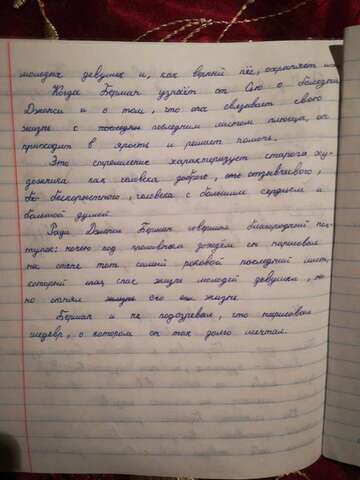 молодых девушек и, как верный пёс, охраняет их
Когда Берман узнаёт от Сью о болезни
Джонси и о том, что она связывает свою
жизнь с последним листом плюща, он
приходит в ярость и решает помочь.
Это стремление характеризует старого ху-
дожника как человека доброго, отзывчивого,
бескорыстного, человека с большим сердцем и
большой душой.
Ради Джонси Берман совершил благородный пос-
тупок: ночью под проливным дождём он нарисовал
на стене тот самый роковой последний лист,
который спас жизнь молодой девушки, но
но отнял его жизнь
Берман и не подозревал, что нарисовал
шедевр, о котором он так долго мечтал.